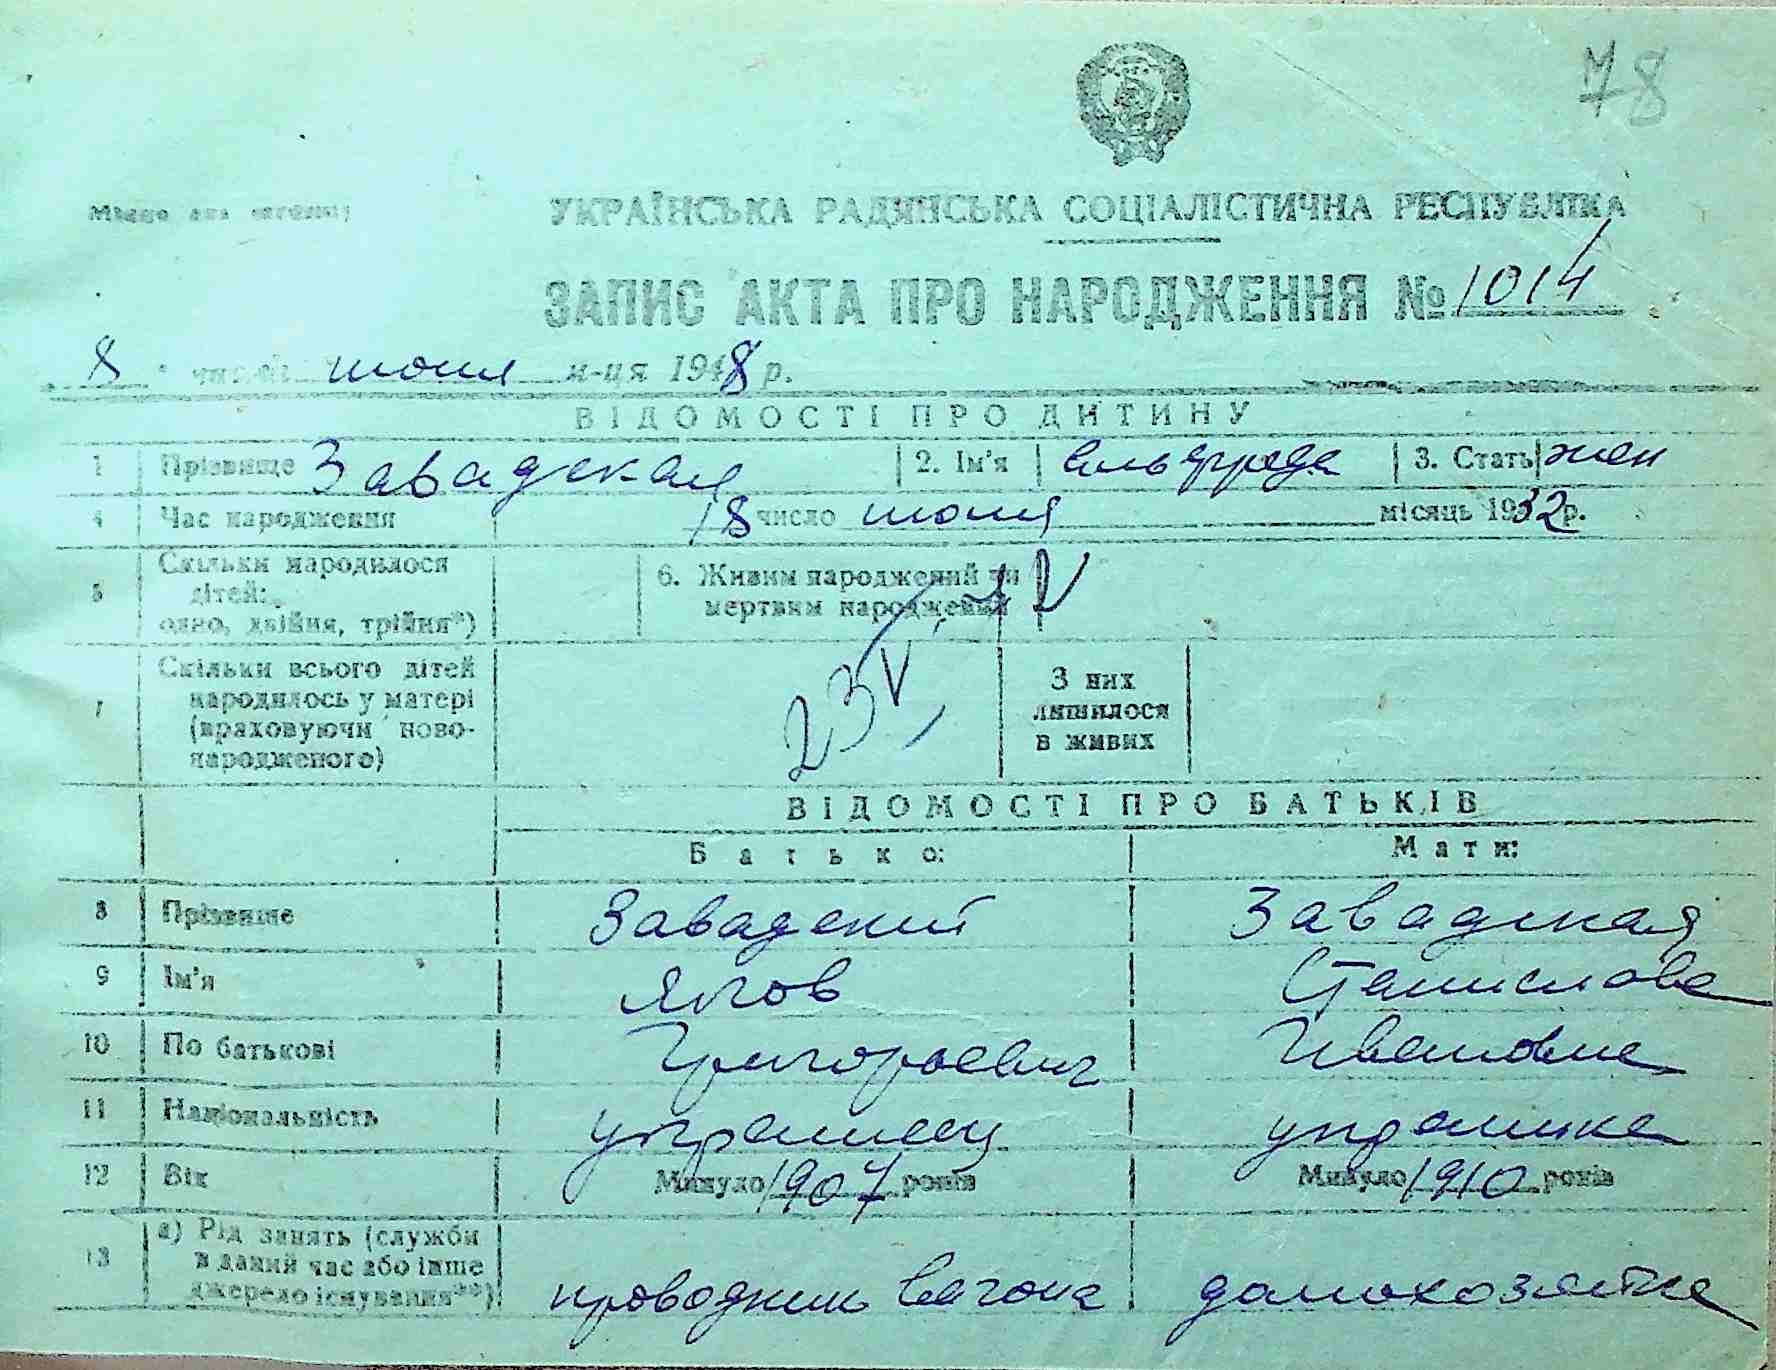 78
Місце для штампу
УКРАЇНСЬКА РАДЯНСЬКА СОЦІАЛІСТИЧНА РЕСПУБЛІКА
ЗАПИС АКТА ПРО НАРОДЖЕННЯ № 1014
8 числа июня м-ця 1948 р.
ВІДОМОСТІ ПРО ДИТИНУ
1 Прізвище Завадская 2. Ім'я Альфреда 3. Стать жен
4 Час народження 18 число июня місяць 1932 р.
5 Скільки народилося дітей: одно, двійня, трійня*) 6. Живим народжений чи мертвим народжений
7 Скільки всього дітей народилось у матері (враховуючи новонародженого) 23 З них лишилося в живих
ВІДОМОСТІ ПРО БАТЬКІВ
Батько: Мати:
8 Прізвище Завадский Завадская
9 Ім'я Яков Станислава
10 По батькові Григорьевич Ивановна
11 Національність украинец украинка
12 Вік Минуло 1907 років Минуло 1910 років
13 а) Рід занять (служби в даний час або інше джерело існування**) проводник вагона домохозяйка